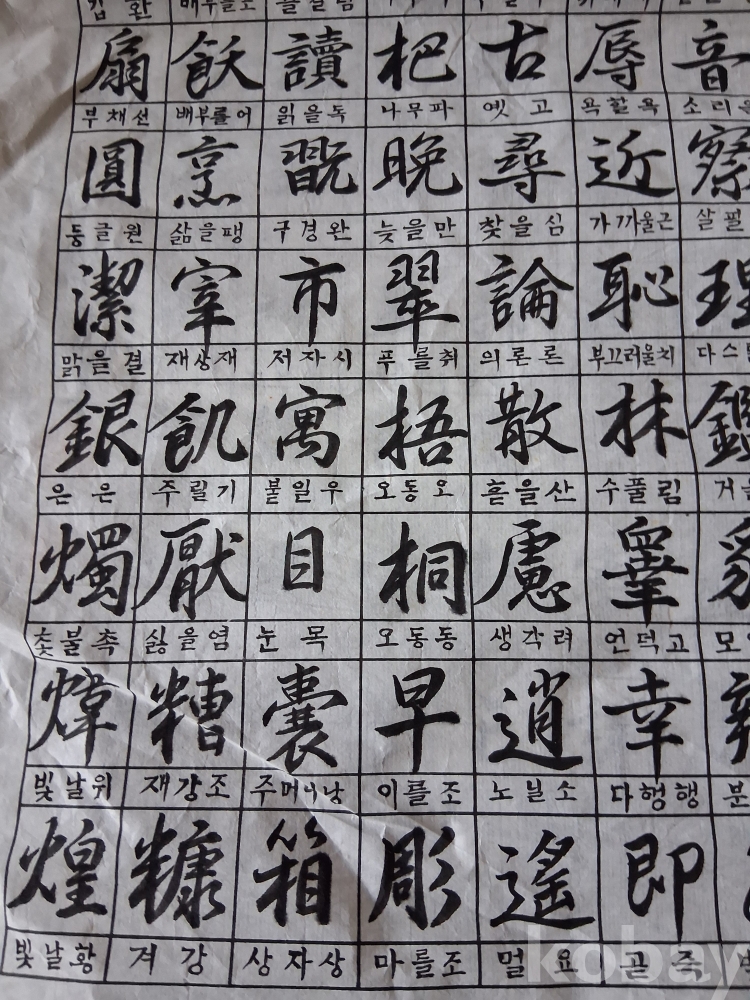 扇 飫 讀 杷 古 辱 音
부채선 배부를어 읽을독 나무파 옛 고 욕할욕 소리
圓 烹 翫 晩 尋 近 察
둥글원 삶을팽 구경완 늦을만 찾을심 가까울근 살필
潔 宰 市 翠 論 恥 理
맑을결 재상재 저자시 푸를취 의론론 부끄러울치 다스
銀 飢 寓 梧 散 林 鑑
은 은 주릴기 붙일우 오동오 흗을산 수풀림 거
燭 厭 目 桐 慮 皐
촛불촉 싫을염 눈 목 오동동 생각려 언덕고 모
煒 糟 囊 早 逍 幸
빛날위 재강조 주머니낭 이를조 노닐소 다행행 분
煌 糠 箱 彫 遙 即
빛날황 겨 강 상자상 마를조 멀 요 곧 즉
kobay